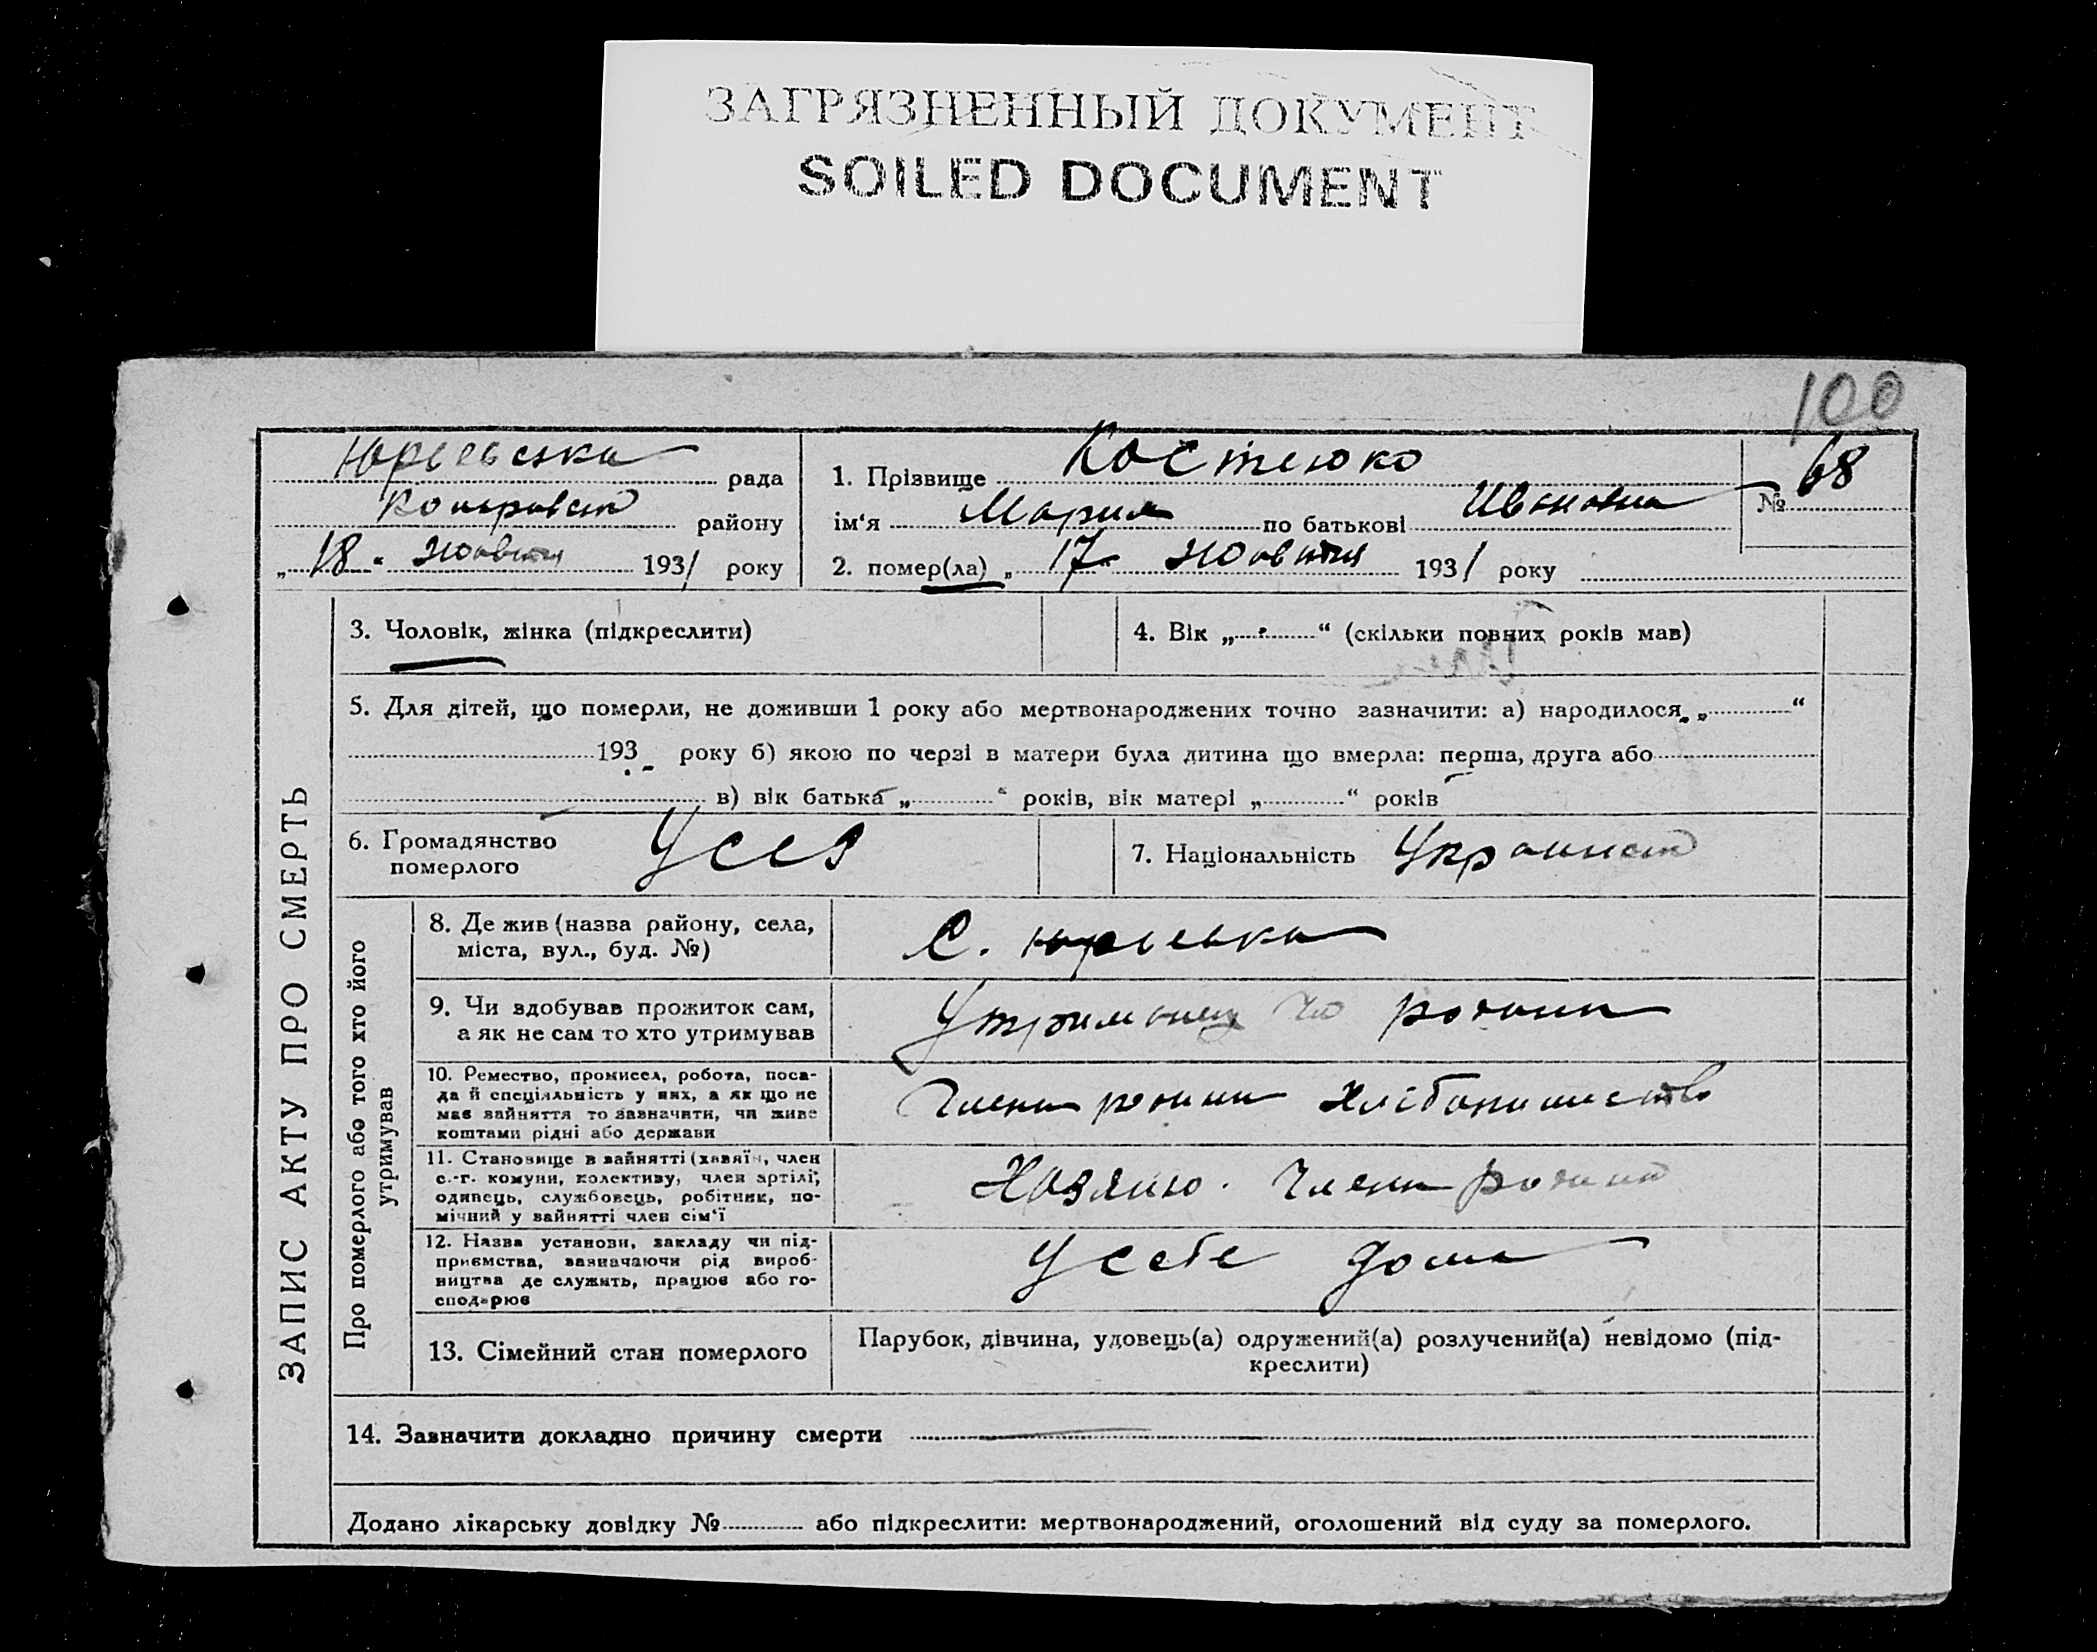 ЗАГРЯЗНЕННЫЙ ДОКУМЕНТ
SOILED DOCUMENT
100
Юрьевська рада
району
„18“ жовтня 1931 року
1. Прізвище Костюко
ім‘я Мария по батькові Ивановна
№ 68
2. помер(ла) „17“ жовтня 1931 року
ЗАПИС АКТУ ПРО СМЕРТЬ
3. Чоловік, жінка (підкреслити)
4. Вік „ “ (скільки повних років мав)
5. Для дітей, що померли, не доживши 1 року або мертвонароджених точно зазначити: а) народилося „ “
193 року б) якою по черзі в матери була дитина що вмерла: перша, друга або
в) вік батька „ “ років, вік матері „ “ років
6. Громадянство
померлого
УССР
7. Національність
Про померлого або того хто його
утримував
8. Де жив (назва району, села,
міста, вул., буд. №)
С. Юрьевка
9. Чи здобував прожиток сам,
а як не сам то хто утримував
родини
10. Ремество, промисел, робота, поса-
да й спеціяльність у них, а як що не
має зайняття то зазначити, чи живе
коштами рідні або держави
Члени родини
11. Становище в зайнятті (хазяїн, член
с.-г. комуни, колективу, член артілі,
одинець, службовець, робітник, по-
мічний у зайнятті член сім‘ї
Члени родини
12. Назва установи, закладу чи під-
приємства, зазначаючи рід вироб-
ництва де служить, працює або го-
сподарює
У себе дома
13. Сімейний стан померлого
Парубок, дівчина, удовець(а) одружений(а) розлучений(а) невідомо (під-
креслити)
14. Зазначити докладно причину смерти
Додано лікарську довідку № або підкреслити: мертвонароджений, оголошений від суду за померлого.